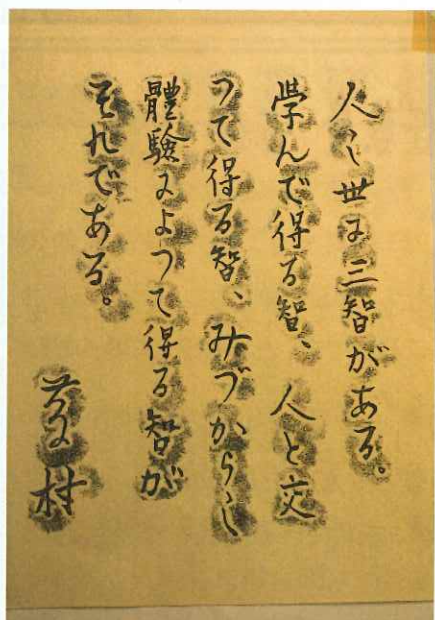 人の世に三智がある。
學んで得る智、人と交
つて得る智、みづからの
體驗によつて得る智が
それである。
藤村